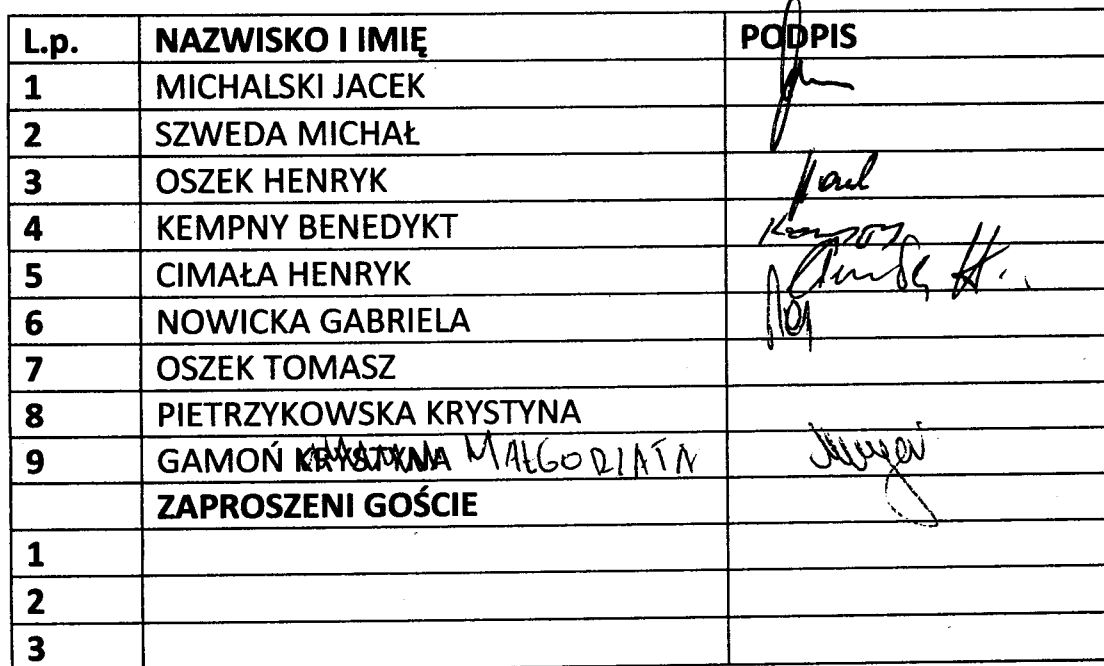 L.p. NAZWISKO I IMIĘ PODPIS
1 MICHALSKI JACEK
2 SZWEDA MICHAŁ
3 OSZEK HENRYK
4 KEMPNY BENEDYKT
5 CIMAŁA HENRYK
6 NOWICKA GABRIELA
7 OSZEK TOMASZ
8 PIETRZYKOWSKA KRYSTYNA
9 GAMOŃ KRYSTYNA MAŁGORZATA
ZAPROSZENI GOŚCIE
1
2
3